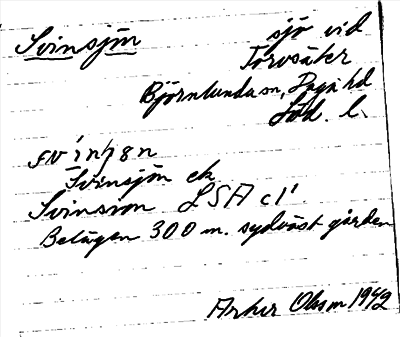 Svinsjön
sjö vid
Torvsäter
Björnlunda sn, Daga hd
Söd. l.
Svinsjön ek
Svinsion LSA c1'
Belägen 300 m. sydväst gården
Arhur Olsson 1942